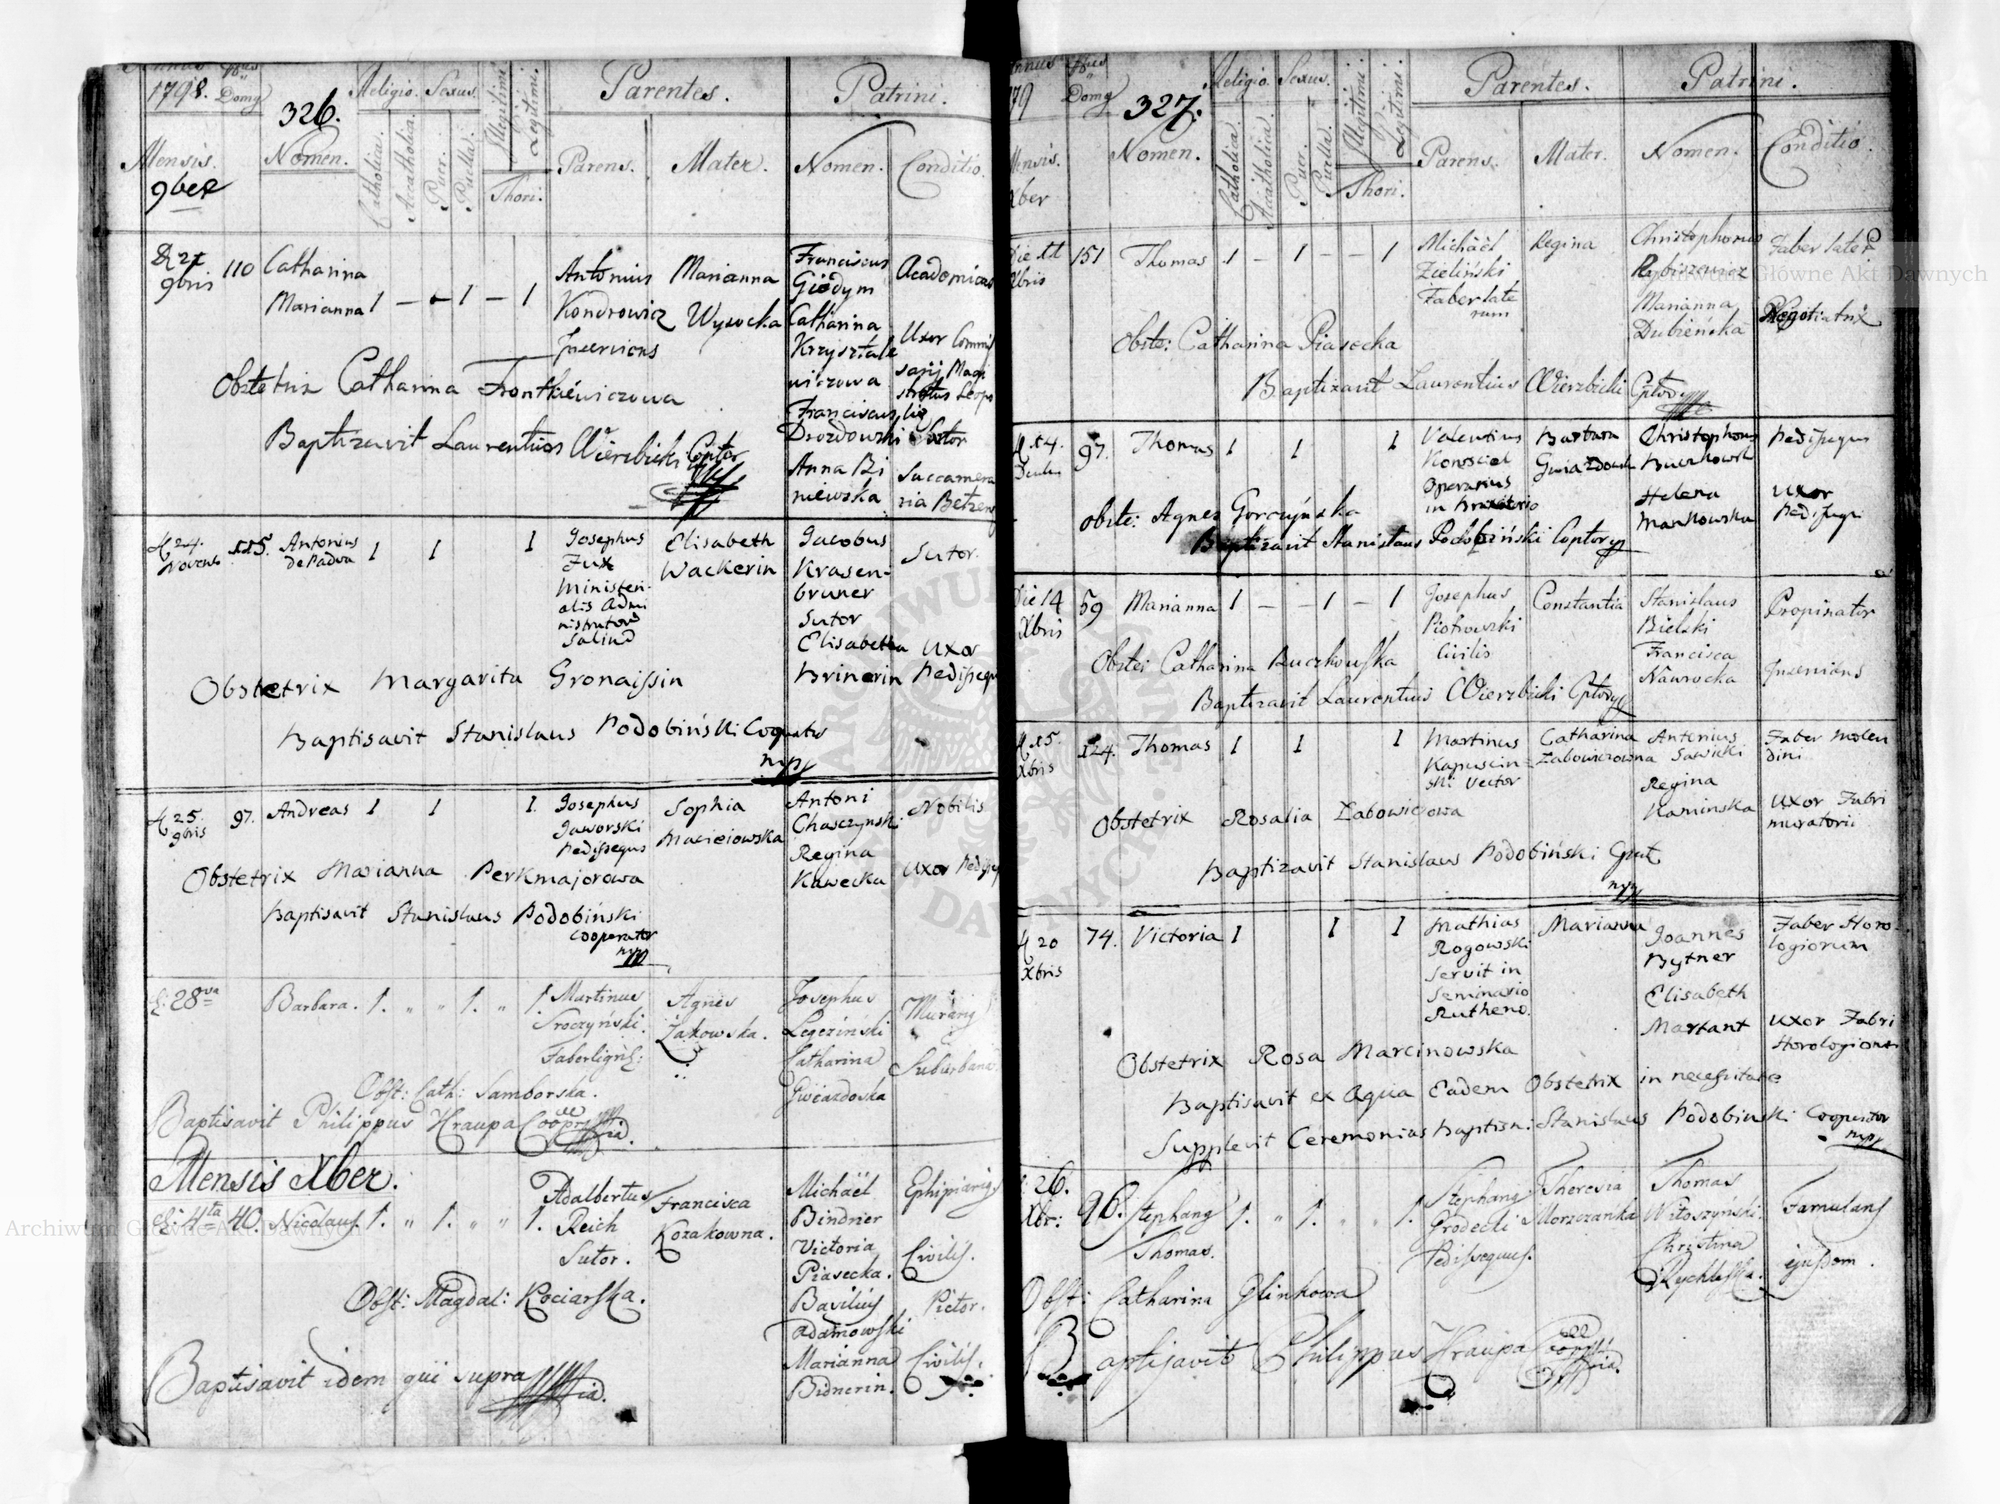 1798. Domy
326.
Religio. Sexus.
Parentes.
Patrini.
Mensis.
9ber
Nomen.
Catholica.
Acatholica.
Puer.
Puella.
Illegitimi.
Legitimi.
Thori.
Parens.
Mater.
Nomen.
Conditio.
9bris 110 Catharina
Marianna 1 — — 1 — 1
Antonius
Kondrowicz
Marianna
Wysocka
Franciscus
Giedym
Catharina
Franciscus
Drozdowski
Anna Bi
niewska
Academicus
Uxor Commis
Obstetrix Catharina Frontkiewiczowa
Baptizavit Laurentius Wierzbicki Coptor
24. 115. Antonius
de Padva 1 1 1
Josephus
Fux
Ministeri
alis Admi
nistratord
Salind
Elisabeth
Wackerin
Jacobus
Krasen-
bruner
Sutor
Elisabetha
Brinerin
Sutor.
Uxor
Pedissequi
Obstetrix Margarita Gronaissin
Baptisavit Stanislaus Podobiński Cooperator
mpp
25. 97. Andreas 1 1 1.
9bris
Josephus
Jaworski
Pedissequs
Sophia
Maciejowska
Antoni
Chasczynski
Regina
Kawecka
Nobilis
Uxor Pedisseq
Obstetrix Marianna Perkmajorowa
Baptisavit Stanislaus Podobiński
Cooperator
mpp
28va Barbara. 1. " " 1. " 1.
Martinus
Sroczyński.
Faberlign:
Agnes
Żakowska.
Josephus
Legeziński
Catharina
Gwiazdoska
Murarig
Suburbana
Obst: Cath: Samborska.
Baptisavit Philippus Hraupa Coopr
Mensis Xber.
4ta 40. Nicolaus. 1. " 1. " " 1.
Adalbertus
Reich
Sutor.
Francisca
Kozakowna.
Michaël
Bindner
Victoria
Piasecka.
Basilius
Adamowski
Marianna
Bidnerin.
Ephipiarig
Civilis.
Pictor.
Civilis.
Obst: Magdal: Kociarska.
Baptisavit idem qui supra
179 Domy
327.
Religio. Sexus.
Parentes.
Patrini.
Mensis.
Xber
Nomen.
Catholica.
Acatholica.
Puer.
Puella.
Illegitimi.
Legitimi.
Thori.
Parens.
Mater.
Nomen.
Conditio.
Die 11 151 Thomas 1 — 1 — — 1
Xbris
Michaël
Zieliński
Faber late
rum
Regina
Christophorus
Rybiszewicz
Marianna
Dubieńska
Faber later
Negotiatrix
Obste: Catharina Piasecka
Baptizavit Laurentius Wierzbicki Cptor
14. 97. Thomas 1 1 1
Valentius
Operarius
in
Barbara
Christophorus
Buczkowski
Helena
Mankowska
Pedissequs
Uxor
Pedissequi
Obste: Agnes Gorczyńska
Baptizavit Stanislaus Podobiński Coptor
Die 14 59 Marianna 1 — — 1 — 1
Xbris
Josephus
Piotrowski
Civilis
Constantia
Stanislaus
Bielski
Francisca
Nawrocka
Propinator
Inserviens
Obste: Catharina Buczkowska
Baptizavit Laurentius Wierzbicki Cptor
15. 124. Thomas 1 1 1
Xbris
Martinus
Kapuscin-
ski Vector
Catharina
Zabowiczowna
Antonius
Sawicki
Regina
Kaminska
Faber Molen
dini
Uxor Fabri
muratorii
Obstetrix Rosalia Zabowicowa
Baptizavit Stanislaus Podobiński Cprat.
mpp
20 74. Victoria 1 1 1
Xbris
Mathias
Rogowski
Servit in
Seminario
Rutheno.
Marianna
Joannes
Bytner
Elisabeth
Martant
Faber Horo-
logiorum
Uxor Fabri
Horologiorum
Obstetrix Rosa Marcinowska
Baptisavit ex Aqua Eadem Obstetrix in necessitate
Supplevit Ceremonias Baptism: Stanislaus Podobinski Cooperator
mpp
26. 96. Stephang 1. " 1. " " 1.
Xbr: Thomas.
Stephang
Grodecki
Pedissequus.
Theresia
Morszanka
Thomas
Witoszyński.
Christina
Rychlisska.
Famulans
ejusdom.
Obst: Catharina Glinkowa
Baptisavit Philippus Hraupa Coopr
Archiwum Główne Akt Dawnych
Archiwum Główne Akt Dawnych